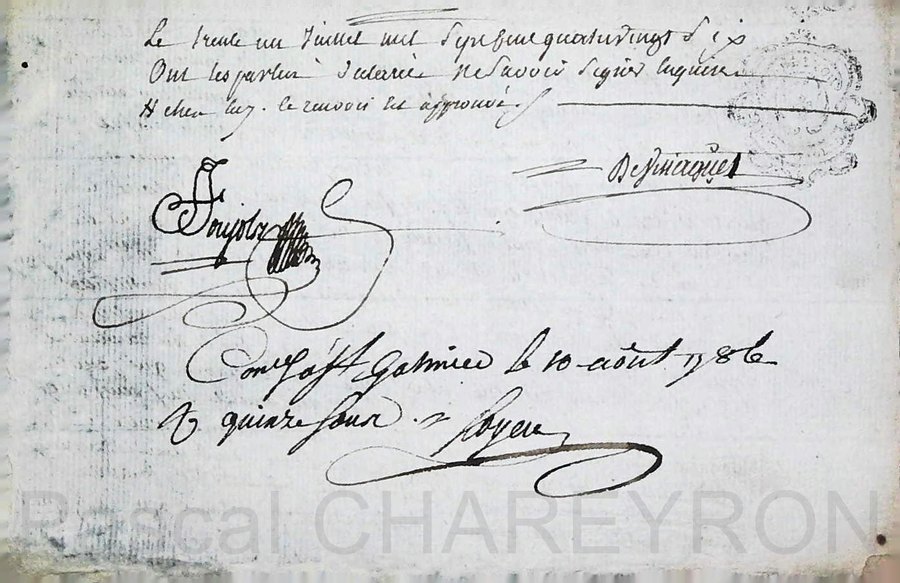 Le trente un Juillet mil Sept cent quatre vingt Six
Ont les parties declaré ne Savoir Signer
chez luy. le renvoi est approuvé.
Desmaque
Coné à St Galmier le 10 août 1786
quinze sous. Royer
Pascal CHAREYRON